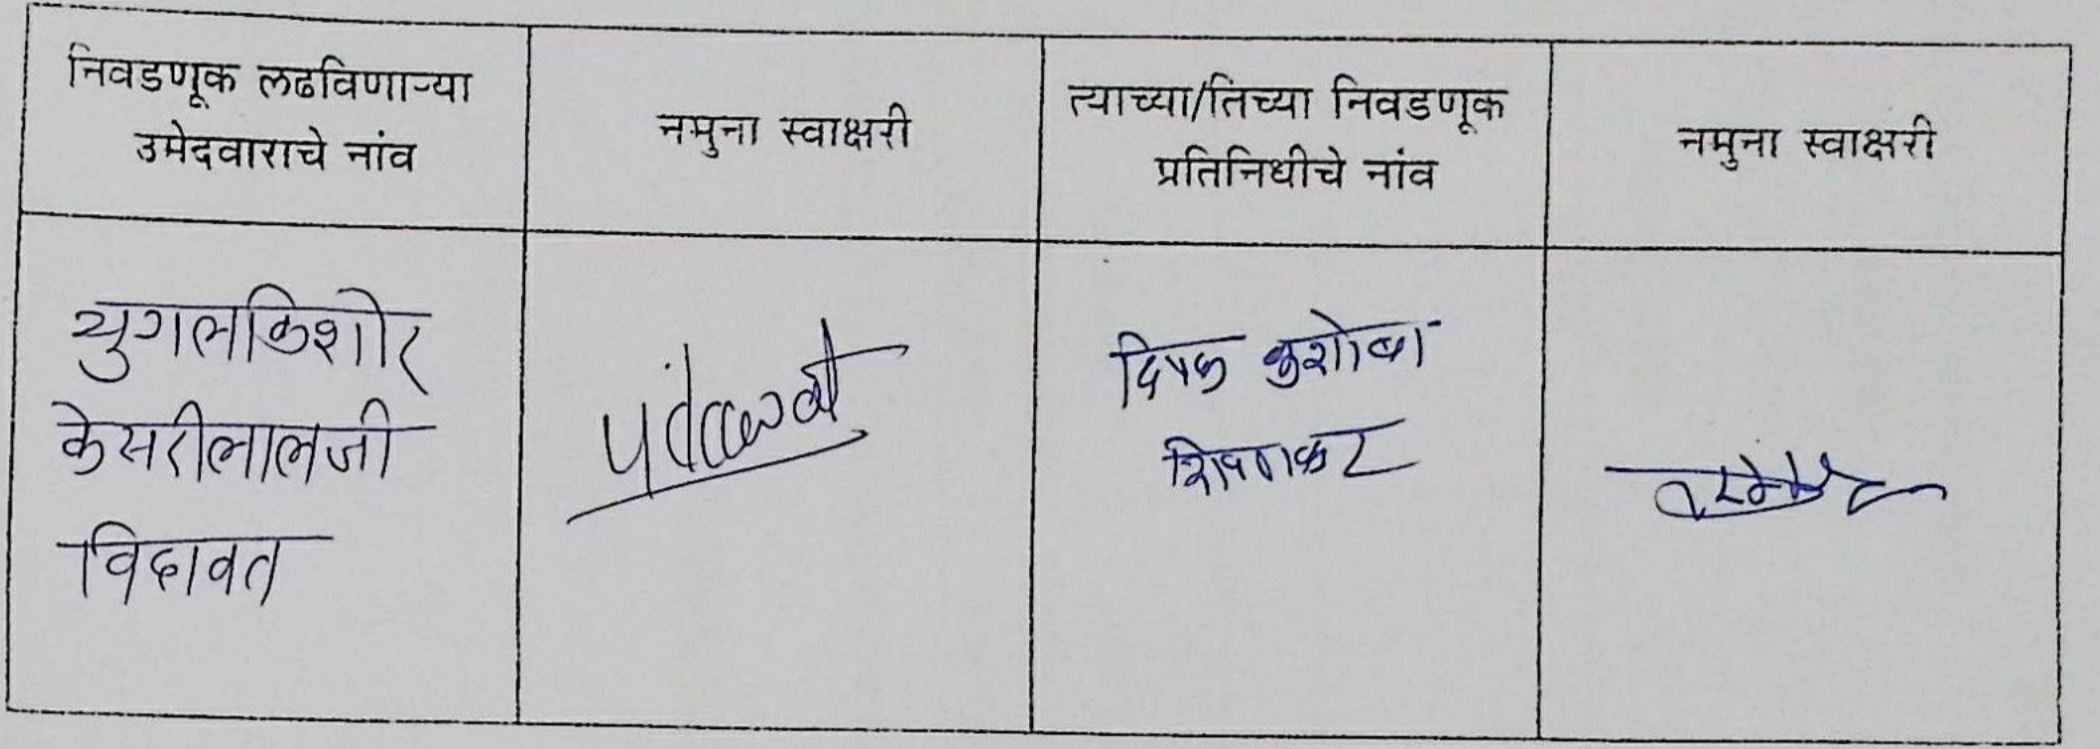 निवडणूक लढविणाऱ्या
उमेदवाराचे नांव
नमुना स्वाक्षरी
त्याच्या/तिच्या निवडणूक
प्रतिनिधीचे नांव
नमुना स्वाक्षरी
युगलकिशोर
केसरीलालजी
विदावत
दिपक कुशोबा